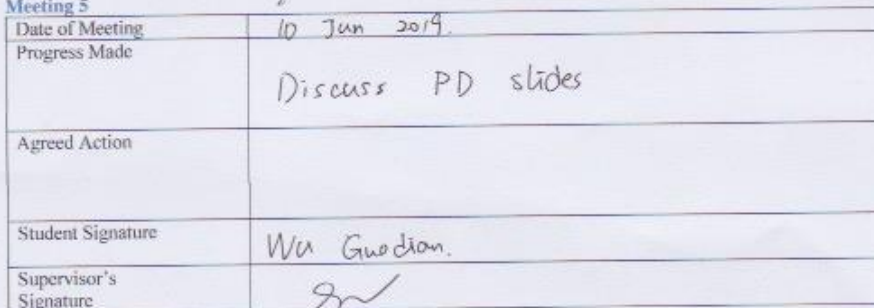 Meeting 5
Date of Meeting 10 Jun 2019.
Progress Made
Discuss PD slides
Agreed Action
Student Signature Wu Guodian.
Supervisor's
Signature